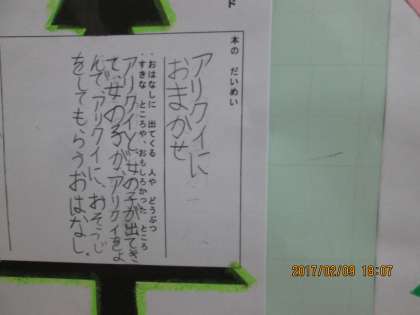 ド
本の だいめい
アリクイに
おまかせ
・おはなしに 出てくる 人や どうぶつ
・すきな ところや、おもしろかった ところ
アリクイと、女の子が出てき
て、女の子が、アリクイをよ
んで、アリクイに、おそうじ
をしてもらうおはなし。
2017/02/09 18:07